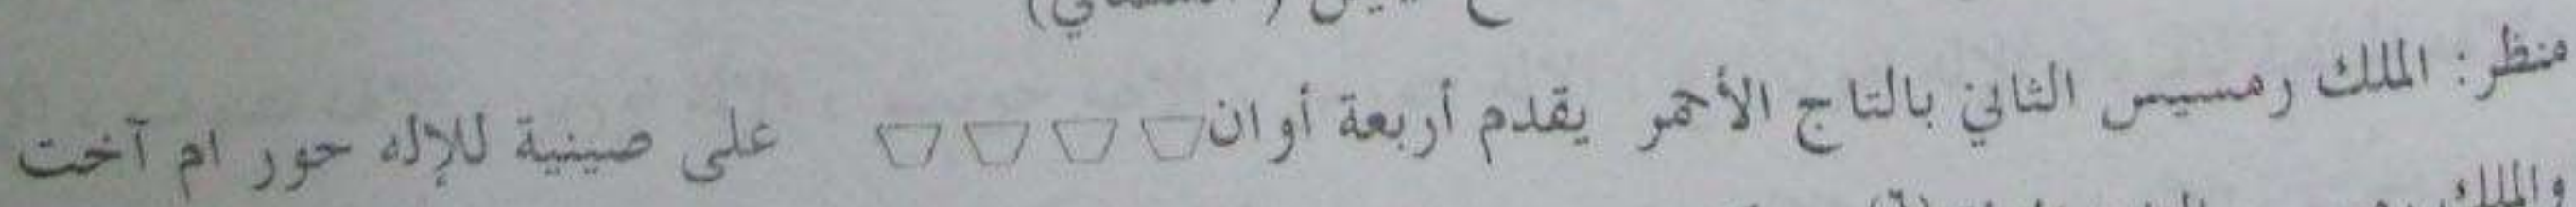 منظر: الملك رمسيس الثاني بالتاج الأحمر يقدم أربعة أوان على صينية للإله حور ام آخت
والملك